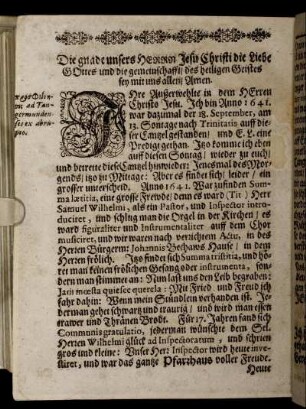 Die gnade unsers HERRN Jesu Christi die Liebe
GOttes und die gemeinschafft des heiligen Geistes
sey mit uns allen/ Amen.
IHre Außerwehlte in dem HErren
Christo Jesu. Ich bin Anno 1641.
war dazumal der 18. September, am
13. Sontage nach Trinitatis auff die-
ser Cantzel gestanden/ und E. L. eine
Predigt gethan. Itzo komme ich eben
auff diesen Sontag/ wieder zu euch/
und betrete diese Cantzel hinwieder; Jenesmal des Mor-
gends/ itzo zu Mittage: Aber es findet sich/ leider/ ein
grosser unterscheid. Anno 1641. War zufinden Sum-
ma lætitia, eine grosse Freude/ denn es ward (Tit:) Herr
Samuel Wilhelmi, als ein Pastor, und Inspector intro-
duciret, und schlug man die Orgel in der Kirchen/ es
ward figuraliter und Instrumentaliter auff dem Chor
musiciret, und wir waren nach verrichtem Actu, in des
Herren Bürgerm: Johannis Bethaws Hause/ in dem
Herren frölich. Itzo findet sich Summa tristitia, und hö-
ret man keinen frölichen Gesang oder instrumenta, son-
dern man stimmet an: Nun last uns den Leib begraben:
Jam mœsta quiesce querela: Mit Fried und Freud ich
fahr dahin: Wenn mein Stündlein verhanden ist. Je-
derman gehet schwartz und traurig/ und wird man essen
trawer und Thränen Brodt. Für 17. Jahren fand sich
Communis gratulatio, jederman wünschte dem Sel.
Herren Wilhelmi glück ad Inspectoratum, und schrien
gros und kleine: Unser Herr Inspector wird heute inve-
stiret, und war das gantze Pfarrhaus voller Freude.
Heute